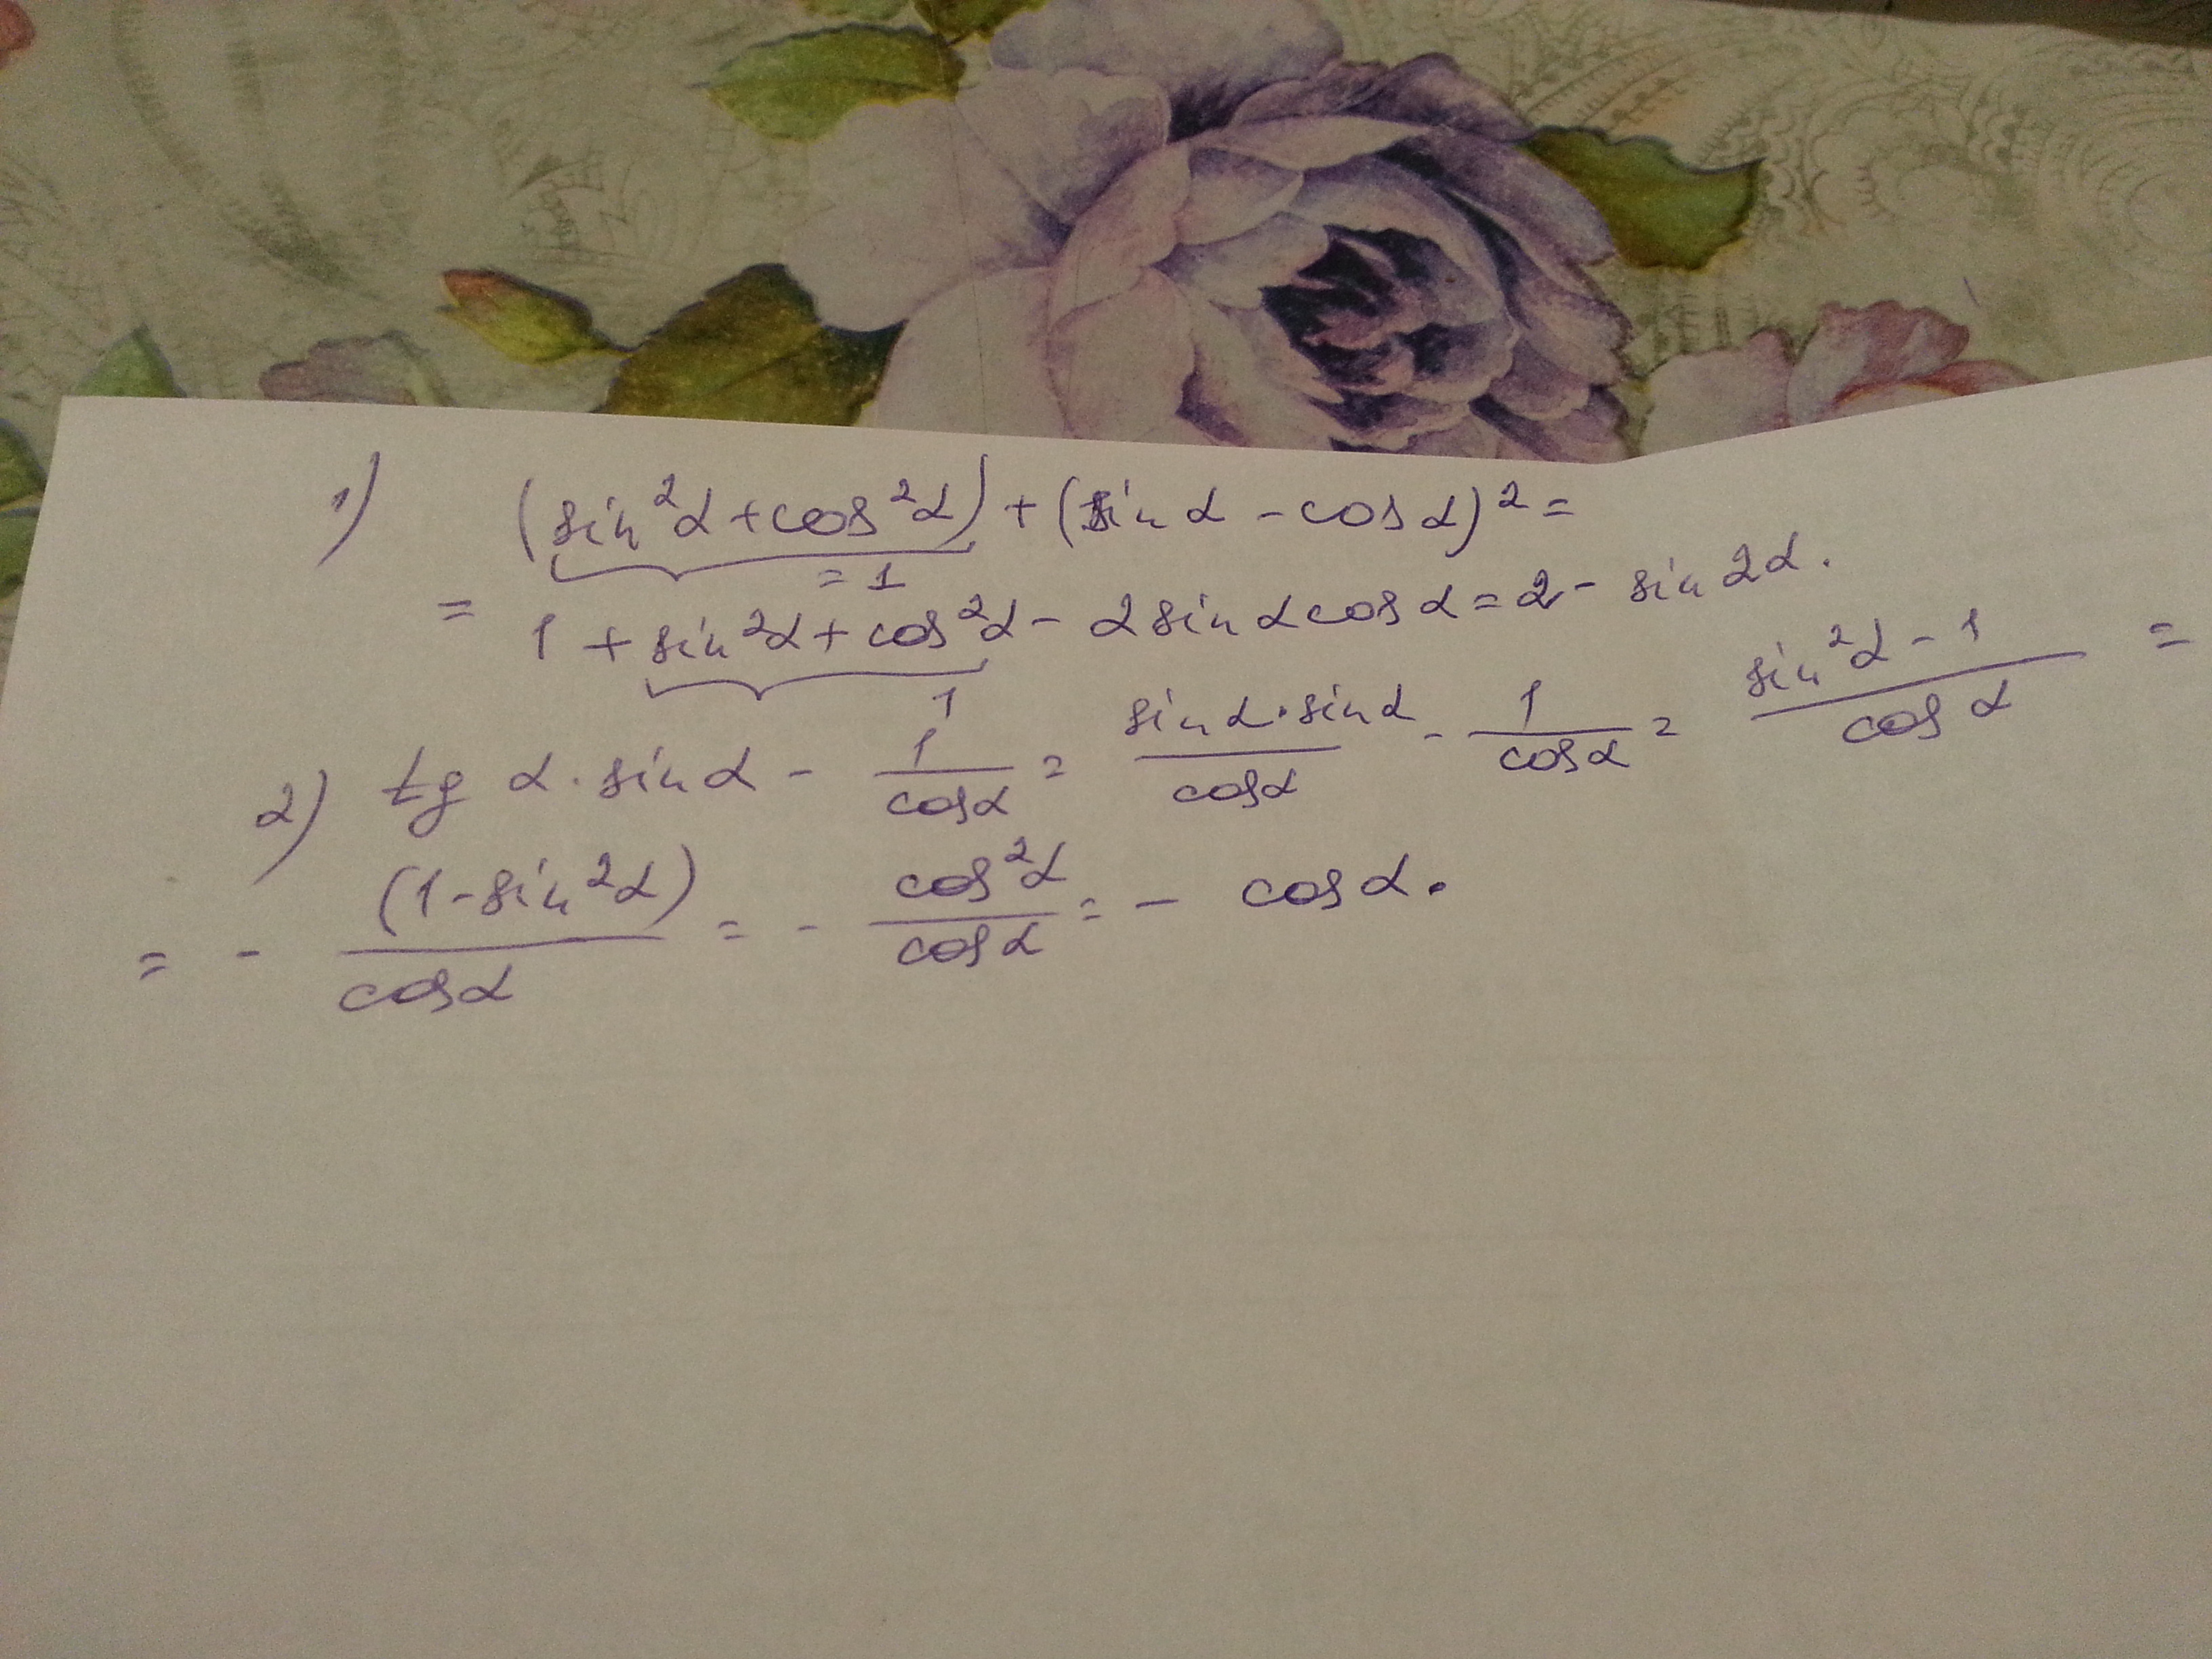 1) (sin²α + cos²α) + (sin α - cos α)² =
= 1
= 1 + sin²α + cos²α - 2 sin α cos α = 2 - sin 2α.
1
2) tg α · sin α - 1/cos α = sin α · sin α/cos α - 1/cos α = sin²α - 1/cos α =
= - (1 - sin²α)/cos α = - cos²α/cos α = - cos α.